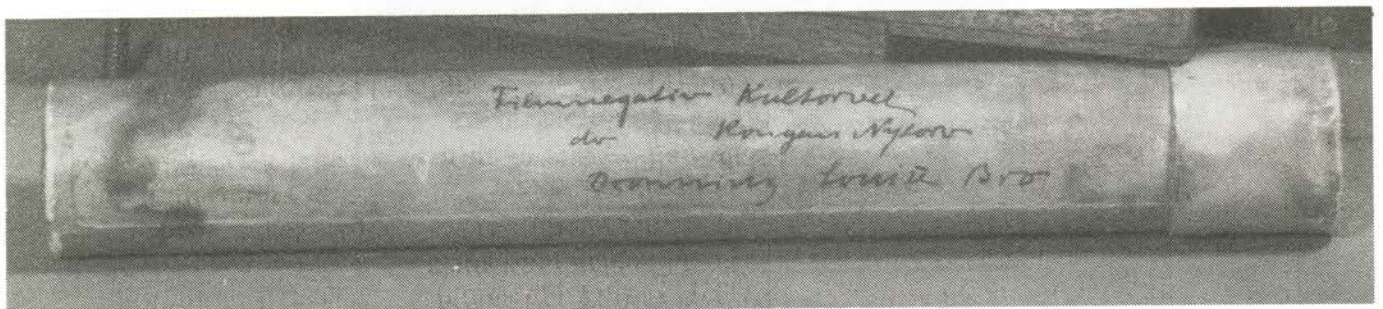 Filmnegativ Kultorvet
do Kongens Nytorv
Dronning Louise Bro